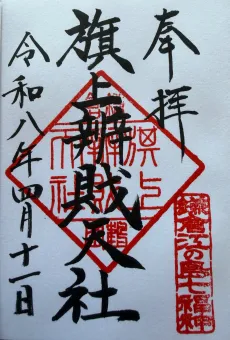 奉拝
旗上辨戝天社
令和八年四月十一日
旗上
弁財
天社
鎌倉江の島七福神